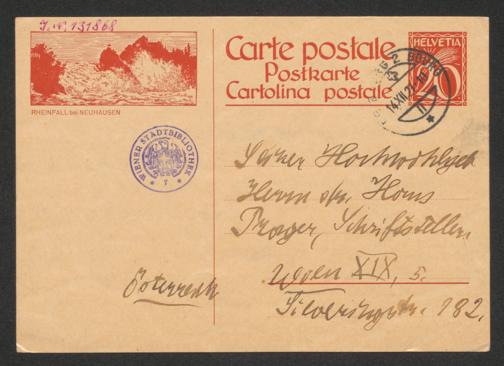 J. N. 131868
Carte postale
Postkarte
Cartolina postale
HELVETIA
20
RHEINFALL bei NEUHAUSEN
WIENER STADTBIBLIOTHEK
* 7 *
Seiner Hochwohlgeb
Herrn Dr. Hans
Prager, Schriftsteller
Wien XIX, 5.
Österreich
Sieveringstr. 182.